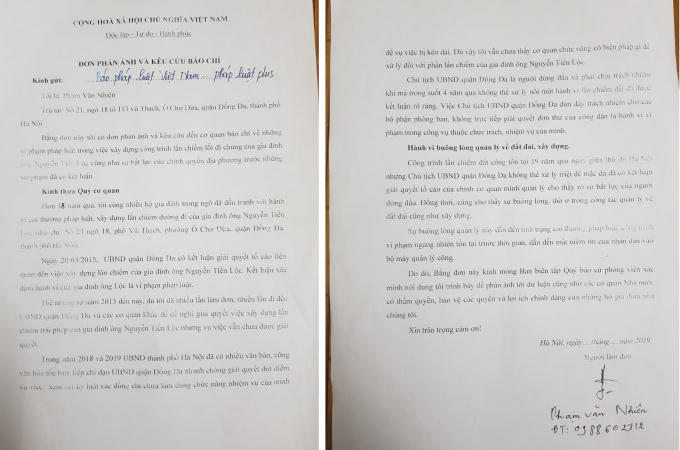 CỘNG HOÀ XÃ HỘI CHỦ NGHĨA VIỆT NAM
Độc lập - Tự do - Hạnh phúc
ĐƠN PHẢN ÁNH VÀ KÊU CỨU BÁO CHÍ
Kính gửi: Báo pháp luật Việt Nam... pháp luật plus
Tôi là: Phạm Văn Nhiên
Trú tại: Số 21, ngõ 18 tổ 113 Vũ Thạch, Ô Chợ Dừa, quận Đống Đa, thành phố
Hà Nội
Bằng đơn này tôi có đơn phản ánh và kêu cứu đến cơ quan báo chí về những
vi phạm pháp luật trong việc xây dựng công trình lấn chiếm lối đi chung của gia đình
ông Nguyễn Tiến Lộc cũng như sự bất lực của chính quyền địa phương trước những
sai phạm đã có kết luận.
Kính thưa Quý cơ quan
Hơn 18 năm qua, tôi cùng nhiều hộ gia đình trong ngõ đã đấu tranh với hành
vi coi thường pháp luật, xây dựng lấn chiếm đường đi của gia đình ông Nguyễn Tiến
Lộc địa chỉ: Số 23 ngõ 18, phố Vũ Thạch, phường Ô Chợ Dừa, quận Đống Đa,
thành phố Hà Nội.
Ngày 20/03/2015, UBND quận Đống Đa có kết luận giải quyết tố cáo liên
quan đến việc xây dựng lấn chiếm của gia đình ông Nguyễn Tiến Lộc. Kết luận xác
định hành vi của gia đình ông Lộc là vi phạm pháp luật.
Thế nhưng từ năm 2015 đến nay, dù tôi đã nhiều lần làm đơn, nhiều lần đi đến
UBND quận Đống Đa và các cơ quan khác để đề nghị giải quyết việc xây dựng lấn
chiếm trái phép của gia đình ông Nguyễn Tiến Lộc nhưng vụ việc vẫn chưa được giải
quyết.
Trong năm 2018 và 2019 UBND thành phố Hà Nội đã có nhiều văn bản, công
văn hỏa tốc trực tiếp chỉ đạo UBND quận Đống Đa nhanh chóng giải quyết dứt điểm
vụ việc, xem xét kỷ luật các đồng chí chưa làm đúng chức năng nhiệm vụ của mình
để vụ việc bị kéo dài. Dù vậy tôi vẫn chưa thấy cơ quan chức năng có biện pháp gì để
xử lý đối với phần lấn chiếm của gia đình ông Nguyễn Tiến Lộc.
Chủ tịch UBND quận Đống Đa là người đứng đầu và phải chịu trách nhiệm
khi mà trong suốt 4 năm qua không thể xử lý nổi một hành vi lấn chiếm đất đã được
kết luận rõ ràng. Việc Chủ tịch UBND quận Đống Đa đùn đẩy trách nhiệm cho các
bộ phận phòng ban, không trực tiếp giải quyết đơn thư của công dân là hành vi vi
phạm trong công vụ thuộc chức trách, nhiệm vụ của mình.
Hành vi buông lỏng quản lý về đất đai, xây dựng.
Công trình lấn chiếm đất công tồn tại 19 năm qua ngay giữa thủ đô Hà Nội
nhưng Chủ tịch UBND quận Đống Đa không thể xử lý triệt để mặc dù đã có kết luận
giải quyết tố cáo của chính cơ quan mình quản lý cho thấy rõ sự bất lực của người
đứng đầu. Đồng thời, cũng cho thấy sự buông lỏng, thờ ơ trong công tác quản lý về
đất đai cũng như xây dựng.
Sự buông lỏng quản lý này dẫn đến tình trạng coi thường pháp luật, công trình
vi phạm ngang nhiên tồn tại trước thời gian, dẫn đến mất niềm tin của nhân dân vào
bộ máy quản lý công.
Do đó, Bằng đơn này kính mong Ban biên tập Quý báo cử phóng viên xác
minh nội dung tôi trình bày để phản ánh tới dư luận cũng như các cơ quan Nhà nước
có thẩm quyền, bảo vệ các quyền và lợi ích chính đáng của những hộ gia đình như
chúng tôi.
Xin trân trọng cảm ơn!
Hà Nội, ngày.... tháng..... năm 2019
Người làm đơn
Phạm văn Nhiên
ĐT: 0388602312